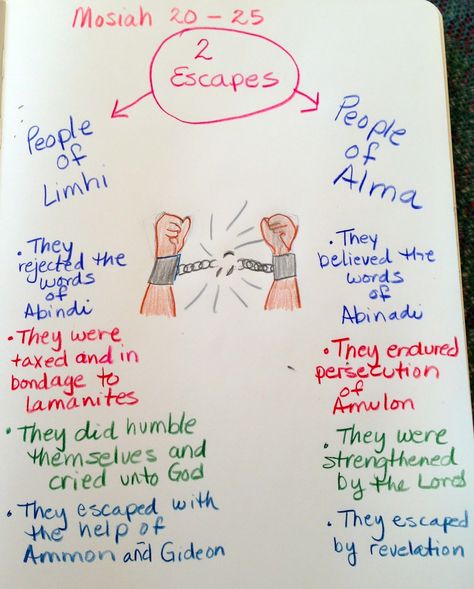 Mosiah 20 - 25
2
Escapes
People
of
Limhi
• They
rejected the
words
of
Abindi
• They were
taxed and in
bondage to
Lamanites
• They did humble
themselves and
cried unto God
• They escaped with
the help of
Ammon and Gideon
People
of
Alma
• They
believed the
words
of
Abinadi
• They endured
persecution
of
Amulon
• They were
strengthened
by the Lord
• They escaped
by revelation